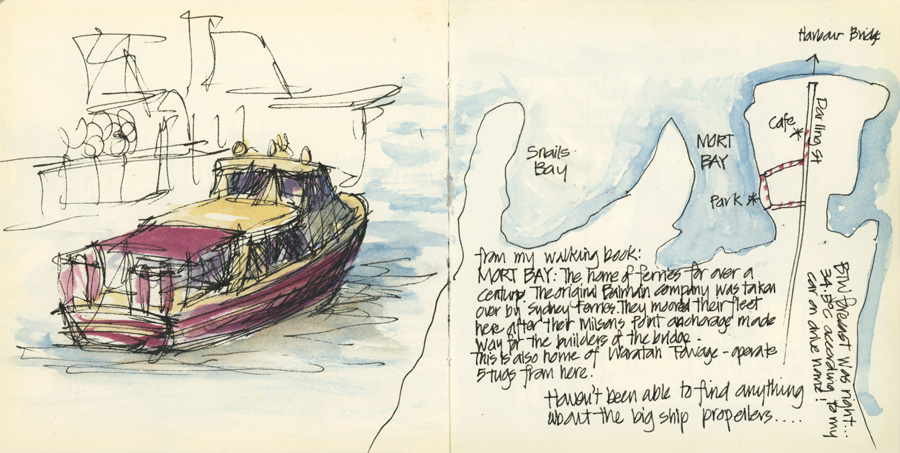 Harbour Bridge
Darling St
Cafe
Snails
Bay
MORT
BAY
Park
from my walking book:
MORT BAY: The home of ferries for over a
century. The original Balmain company was taken
over by Sydney Ferries. They moored their fleet
here after their Milsons Point anchorage made
way for the builders of the bridge.
This is also home of Waratah Towage - operate
5 tugs from here.
Haven't been able to find anything
about the big ship propellers....
BTW forecast was right...
34.5°C according to my
car on drive home!